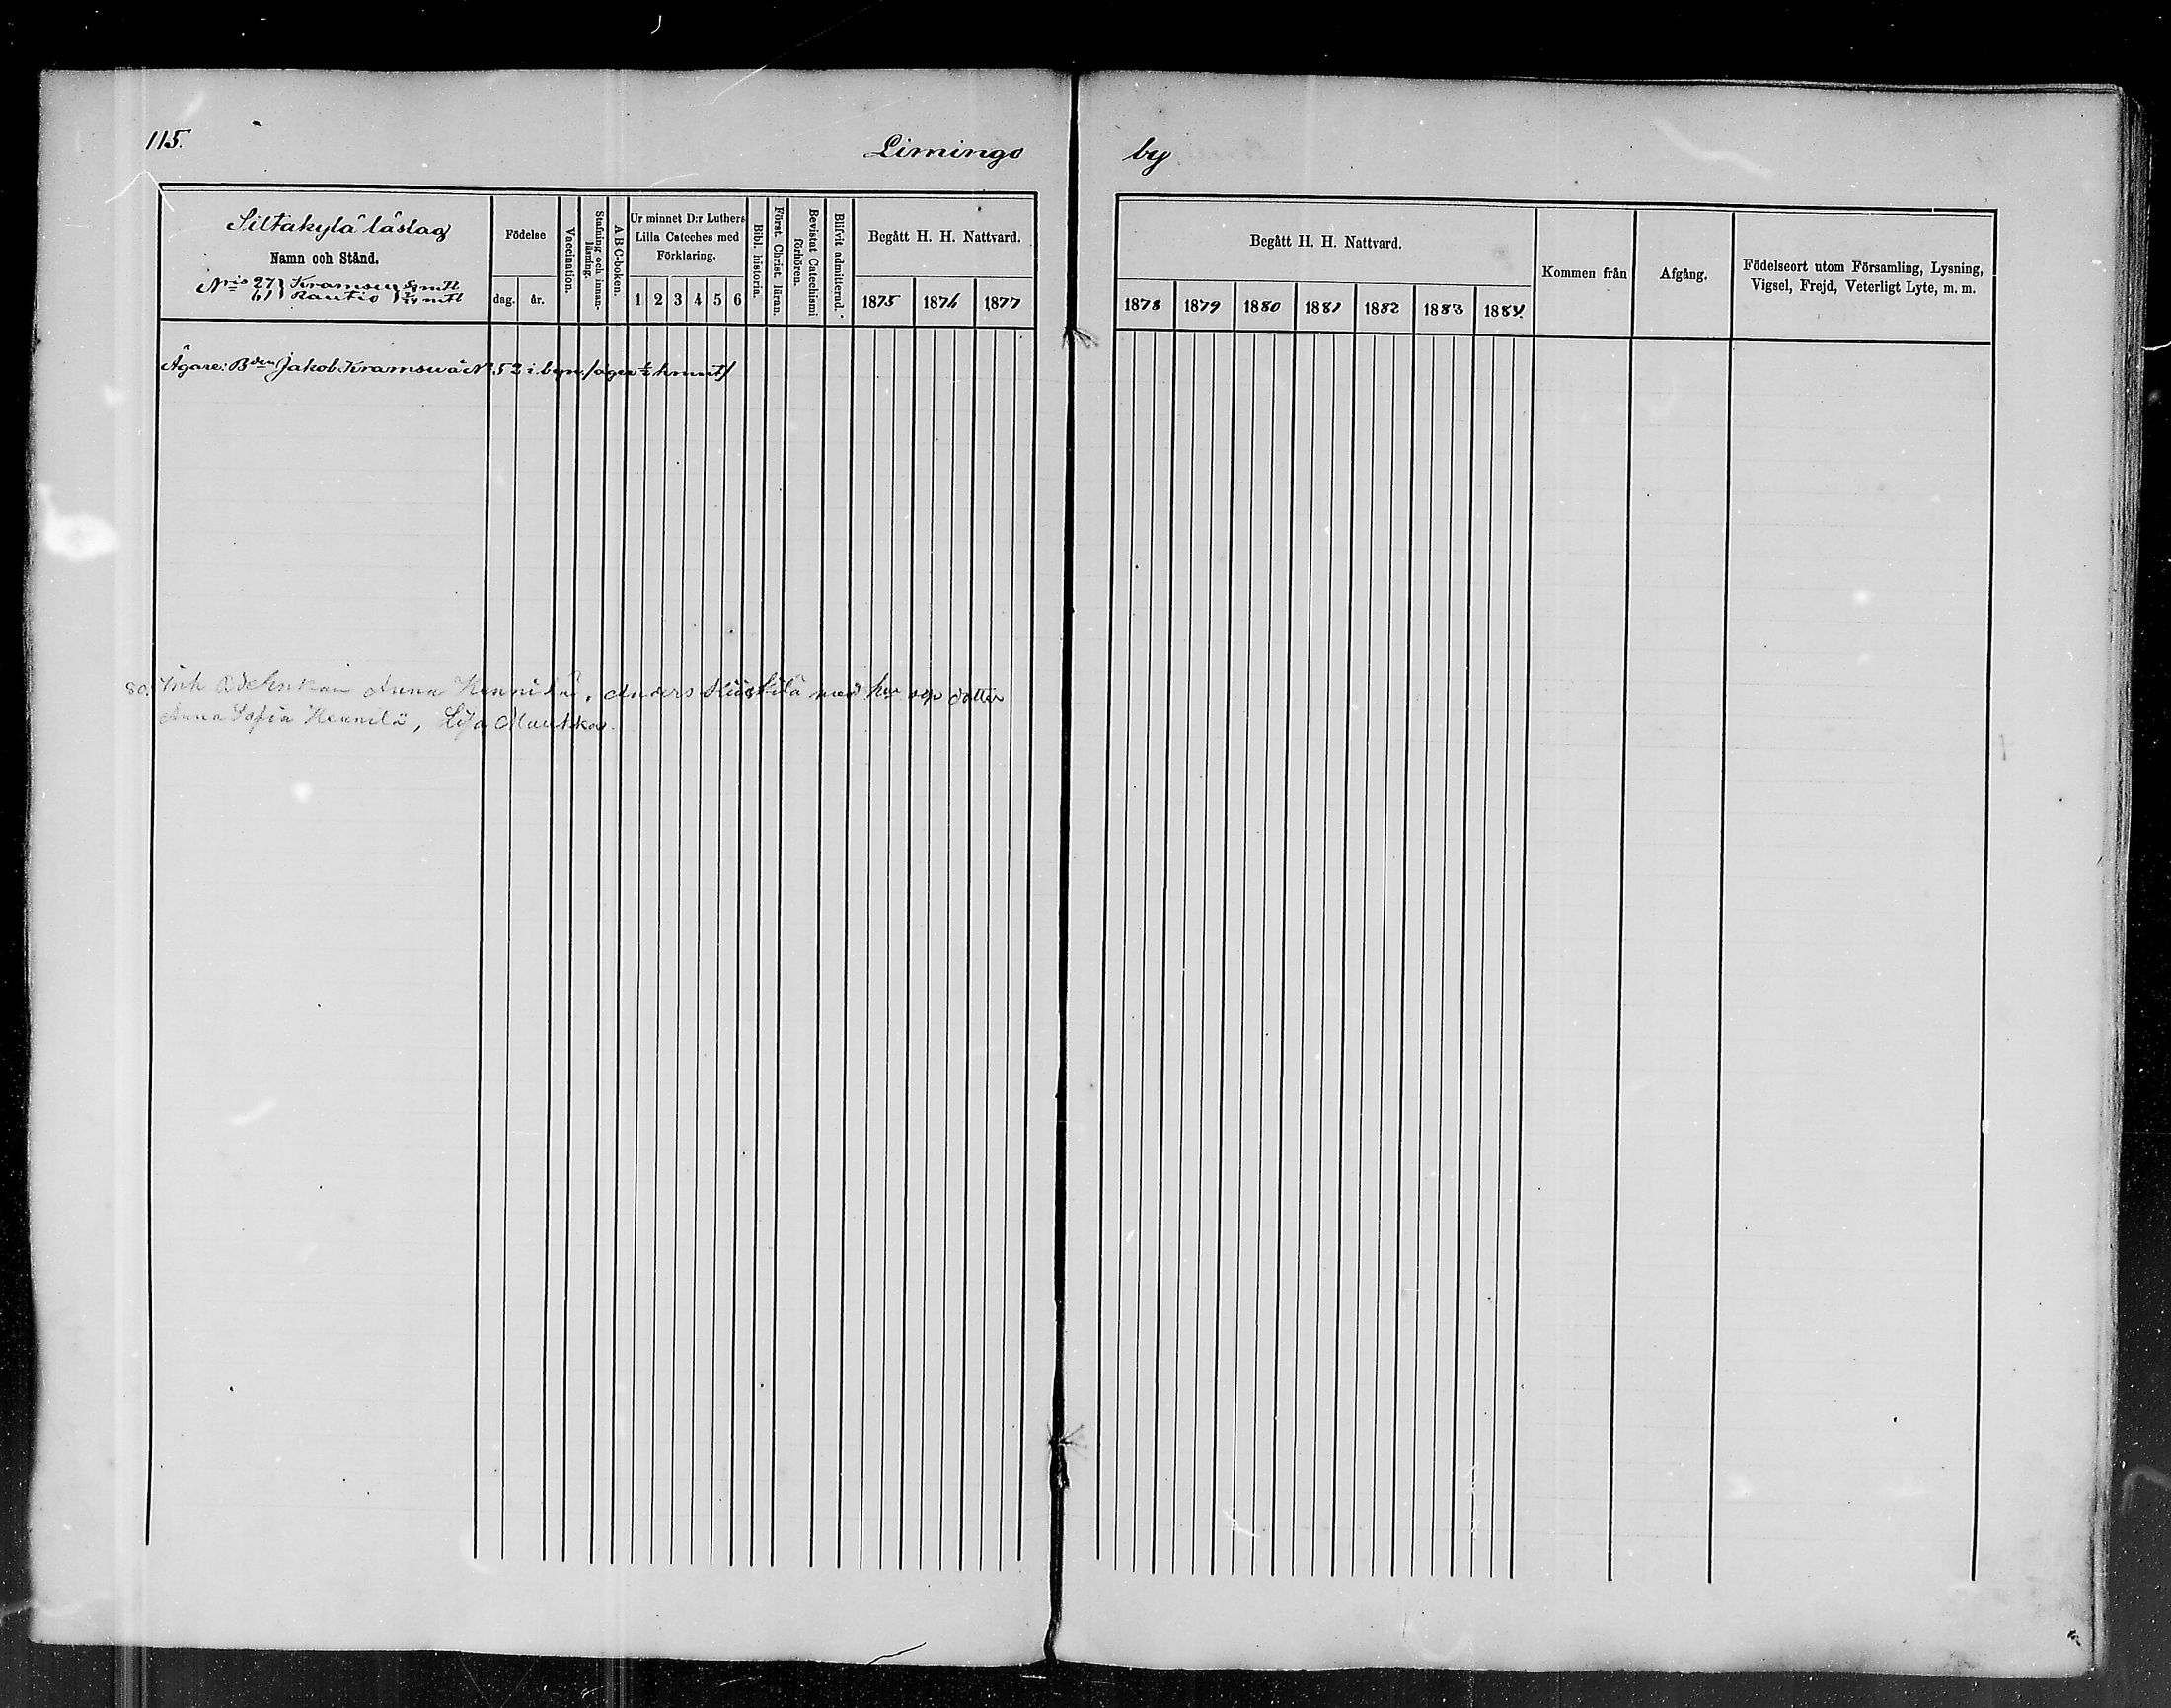 115.
Limingo by
Siltakylä läslag
Namn och Stånd.
N:ris 27 Kramsu
61 Rautio
Födelse
dag. år.
Vaccination.
Stafning och innan-läsning.
A B C-boken.
Ur minnet D:r Luthers
Lilla Cateches med
Förklaring.
1 2 3 4 5 6
Bibl. historia.
Först. Christ. läran.
Bevistat Catechismi förhören.
Blifvit admitterad.
Begått H. H. Nattvard.
1875 1876 1877
Begått H. H. Nattvard.
1878 1879 1880 1881 1882 1883 1884
Kommen från
Afgång.
Födelseort utom Församling, Lysning,
Vigsel, Frejd, Veterligt Lyte, m. m.
Ägare: Bden Jakob Kramsu å N 52 i byn /äger ½ hemmt/
80. Inh Anna Hennilä, Anders med dotter
Anna Sofia Hennilä, Maukka.